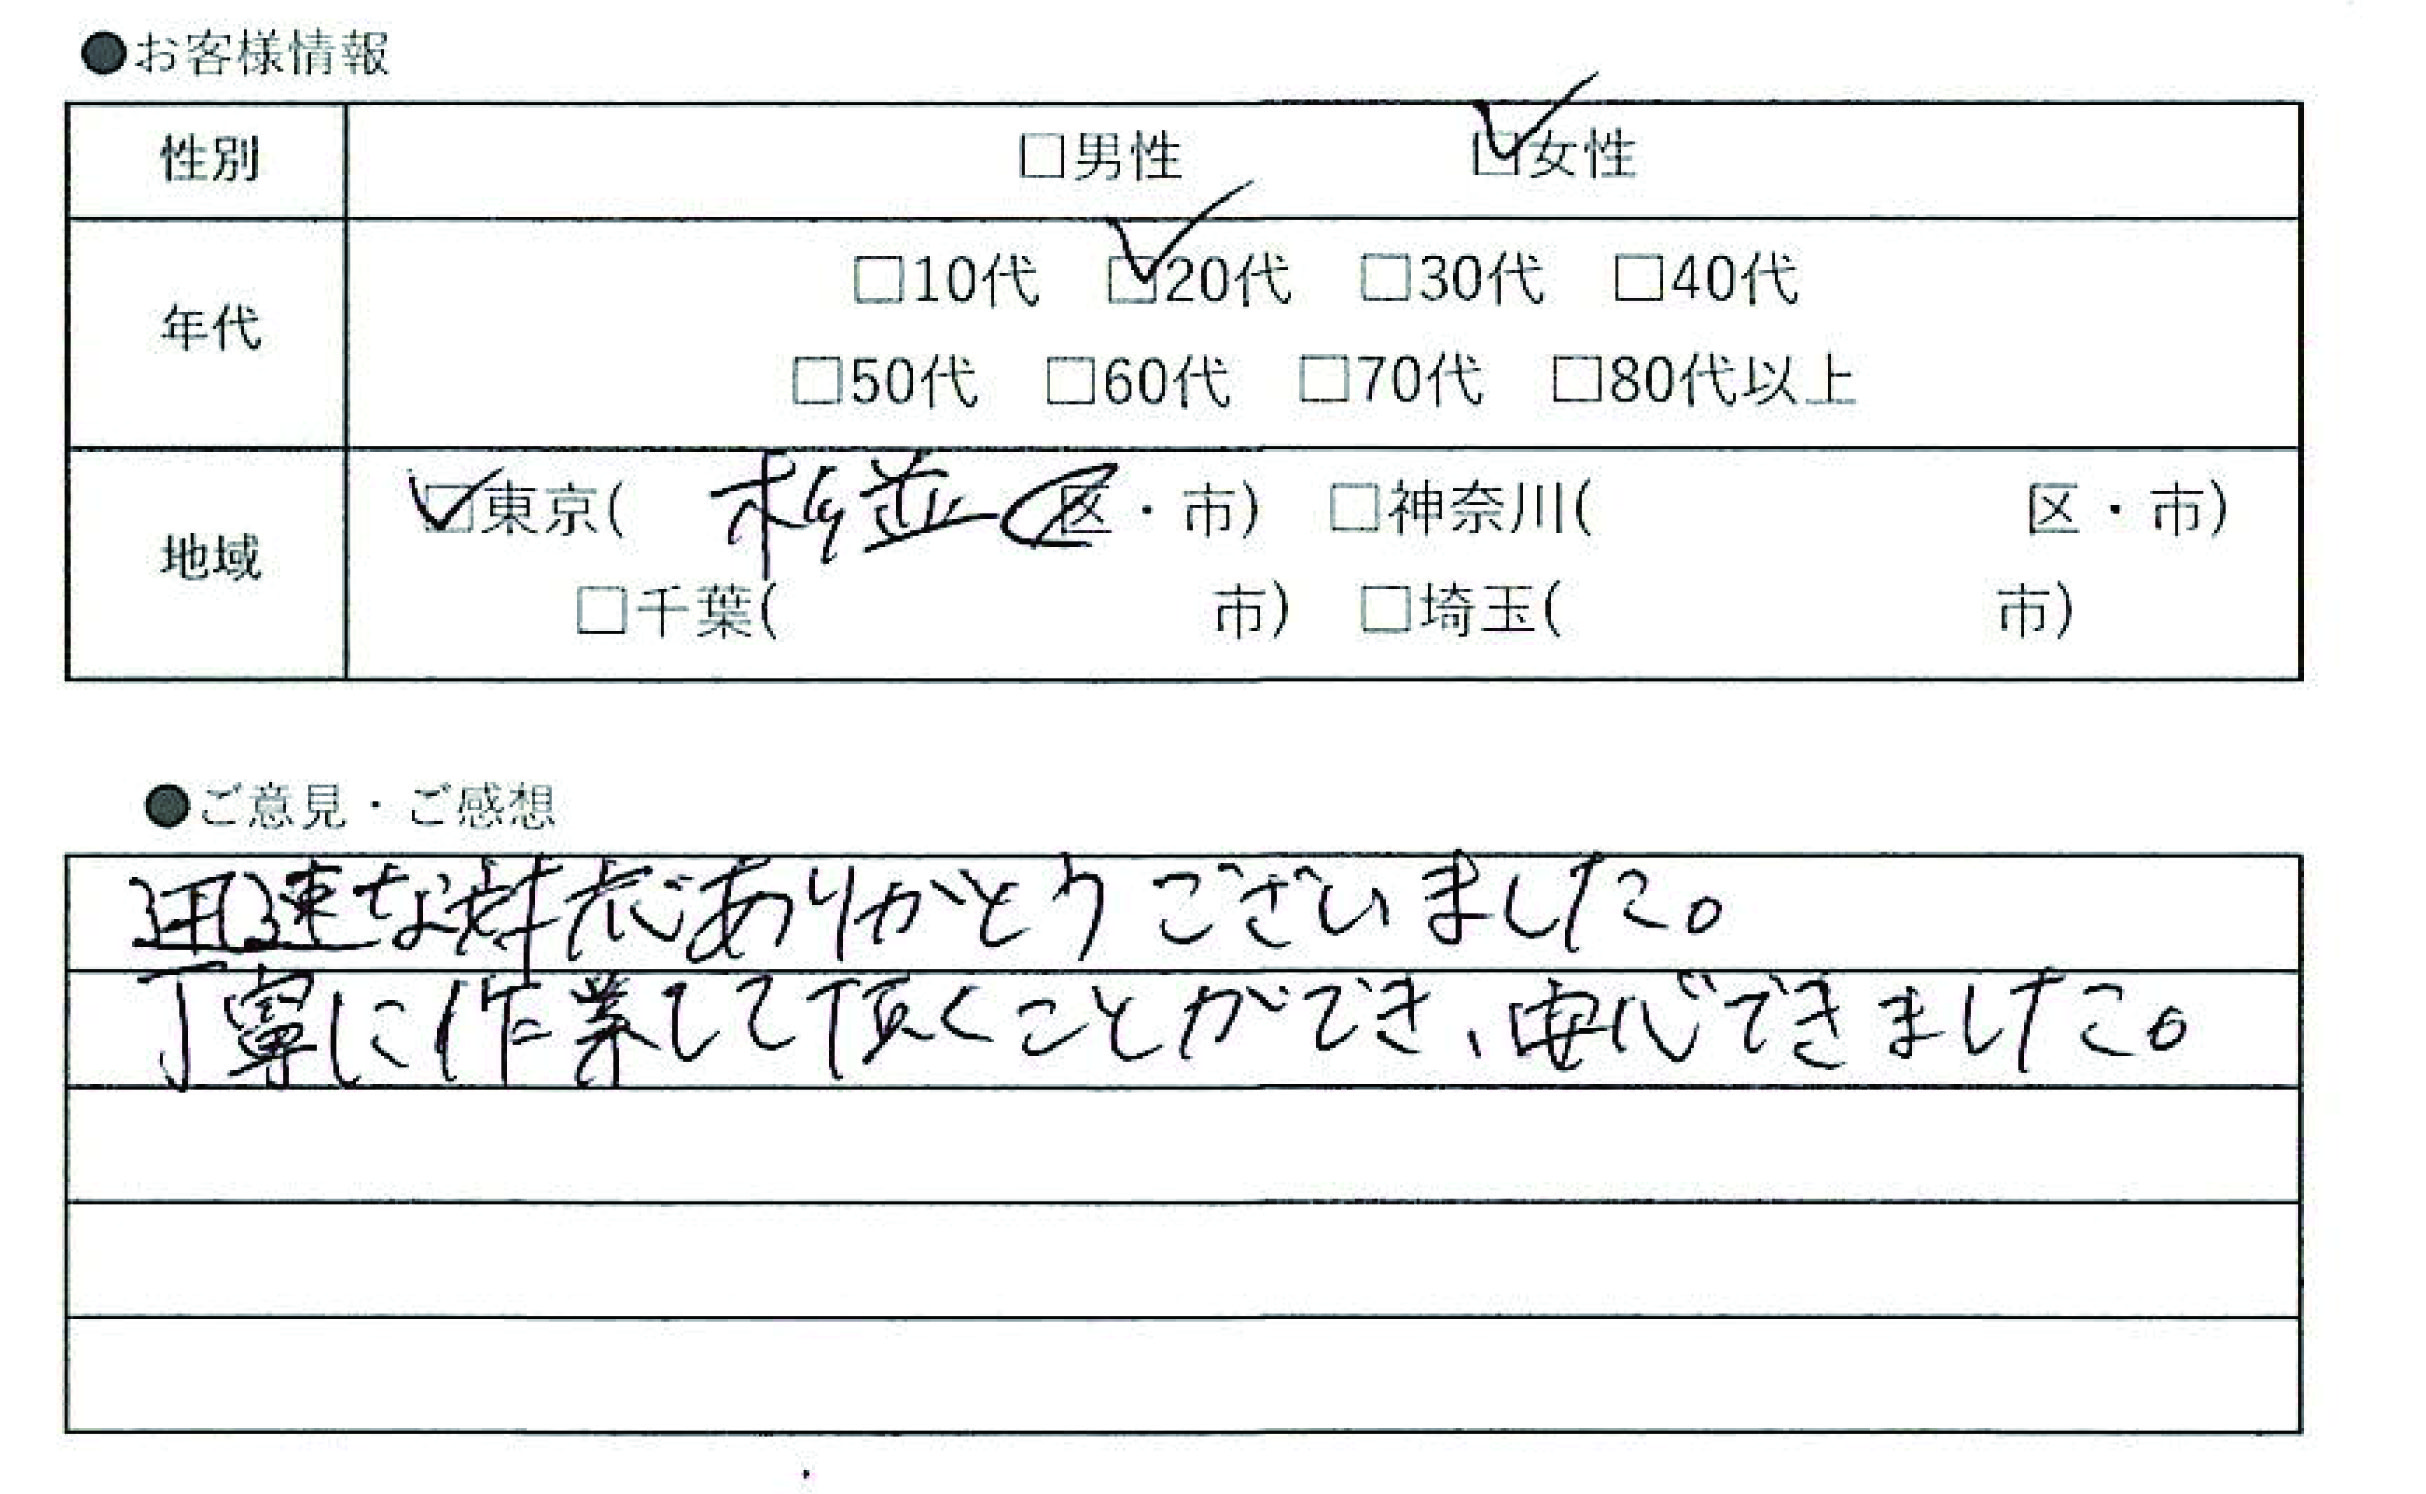 ●お客様情報
性別 □男性 ☑女性
年代 □10代 ☑20代 □30代 □40代
□50代 □60代 □70代 □80代以上
地域 ☑東京( 杉並 区・市) □神奈川( 区・市)
□千葉( 市) □埼玉( 市)
●ご意見・ご感想
迅速な対応ありがとうございました。
丁寧に作業して頂くことができ、安心できました。